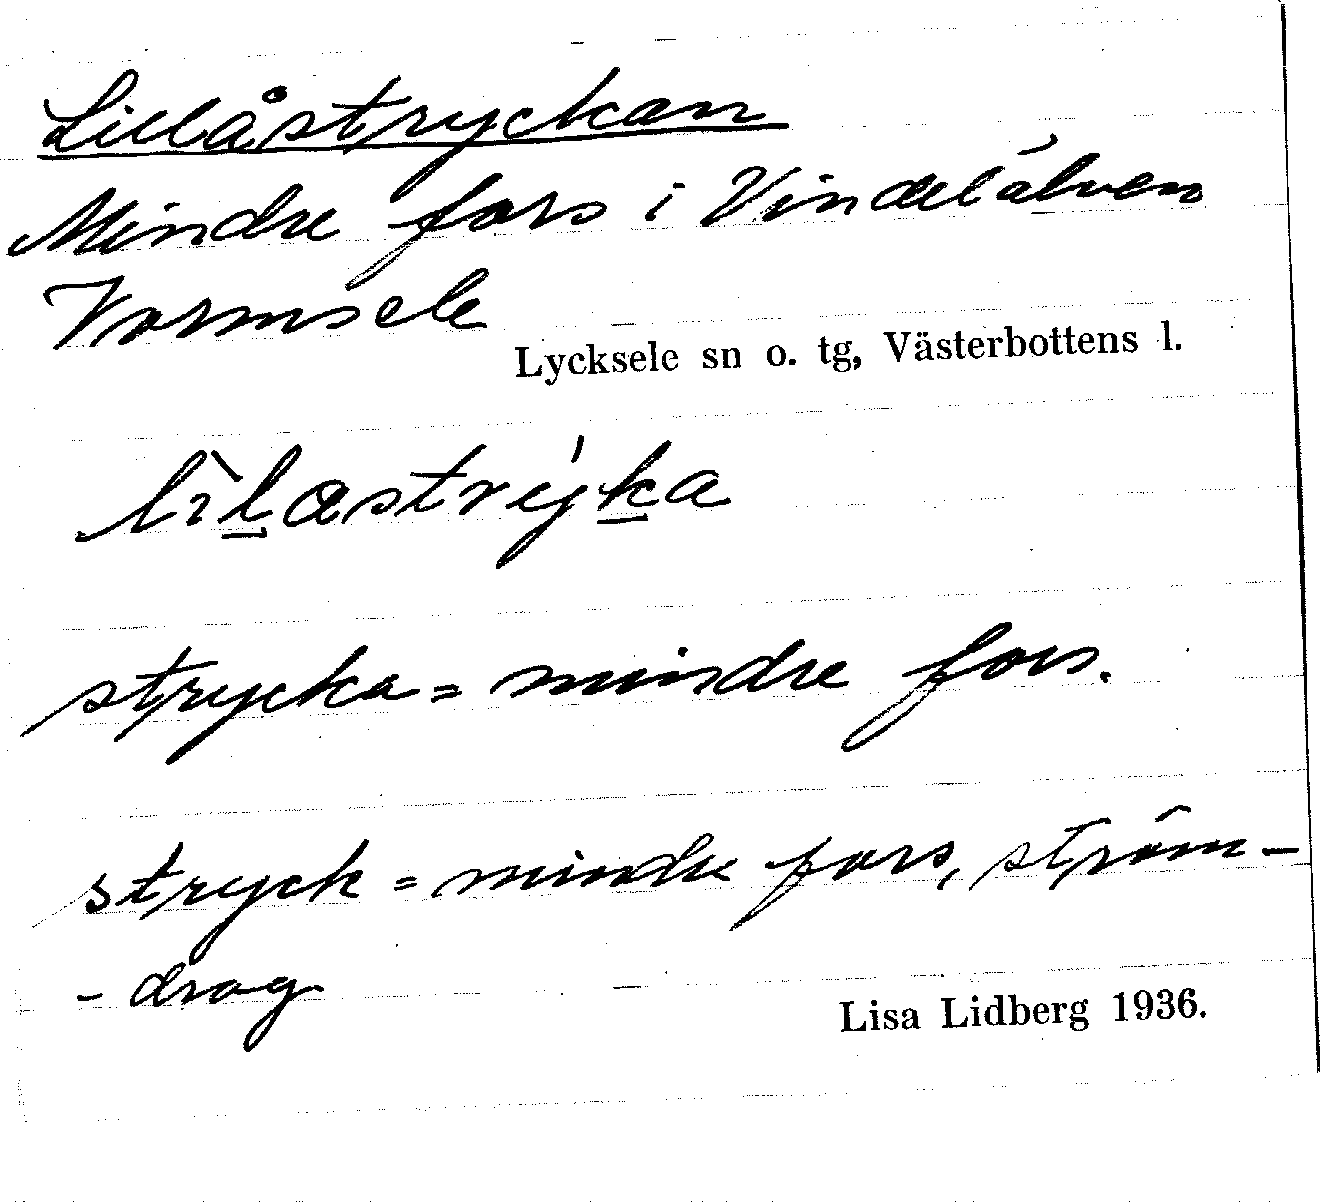 Lillåstryckan
Mindre fors i Vindelälven
Vormsele
Lycksele sn o. tg, Västerbottens l.
lìl̲astrýk̲a
strycka = mindre fors.
stryck = mindre fors, ström-
- drag
Lisa Lidberg 1936.